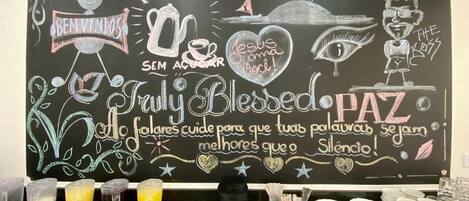 BENVINDOS
SEM AÇUCAR
Jesus
ama
você!
THE
BOSS
Truly Blessed
PAZ
Ao falares cuide para que tuas palavras sejam
melhores que o Silêncio!